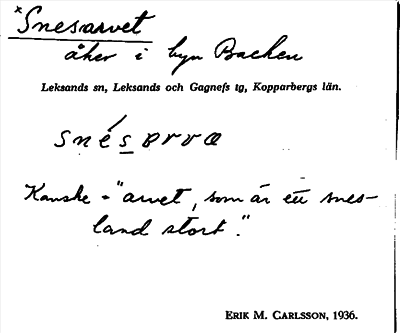 *Snesarvet
åker i byn Backen
Leksands sn, Leksands och Gagnefs tg, Kopparbergs län.
Kanske = "arvet, som är ett snes-
land stort".
ERIK M. CARLSSON, 1936.